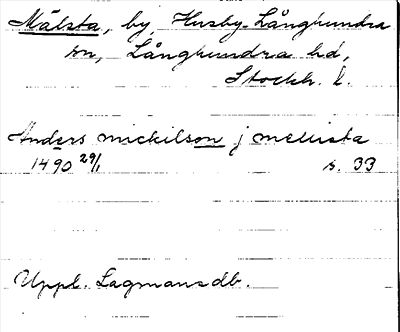 Mälsta, by, Husby-Långhundra
sn, Långhundra hd,
Stockh. l.
Anders mickilson j mellista
1490 29/1 s. 33
Uppl. Lagmansdb.